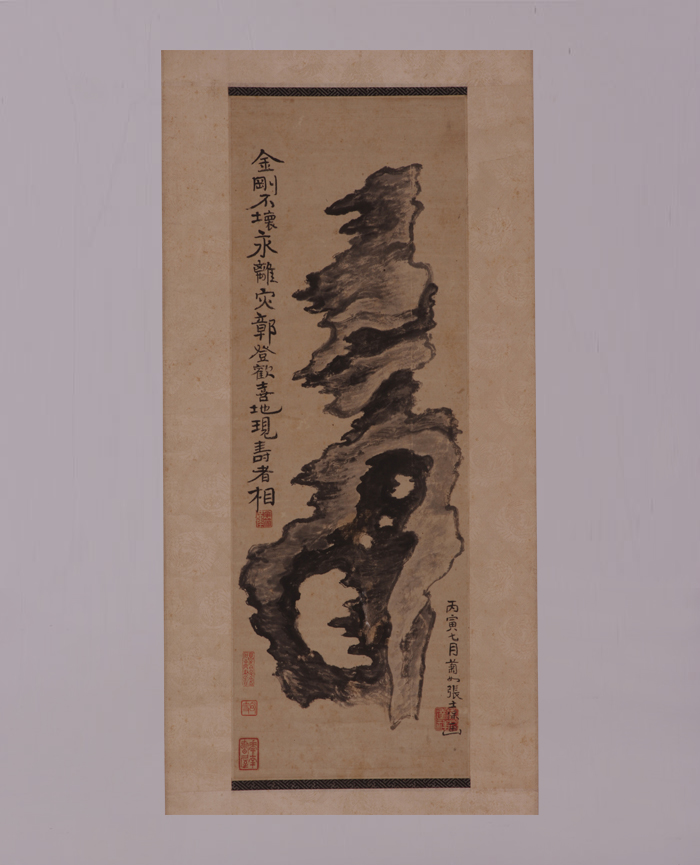 金剛不壞永離灾鄣登歡喜地現壽者相
丙寅七月菊如張士保画